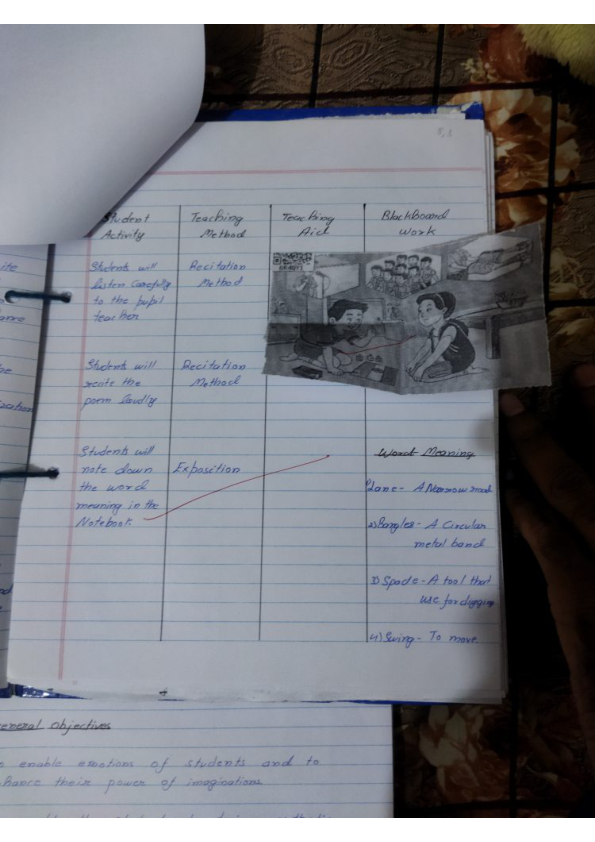 Student Activity
Teaching Method
Teaching Aid
Blackboard Work
Students will
listen carefully
to the pupil
teacher
Recitation
Method
Students will
recite the
poem loudly
Recitation
Method
Students will
note down
the word
meaning in the
Notebook
Exposition
Word Meaning
Lane - A Narrow road
2) Bangles - A Circular
metal band
3) Spade - A tool that
use for digging
4) Swing - To move
General Objectives
enable emotions of students and to
their power of imaginations